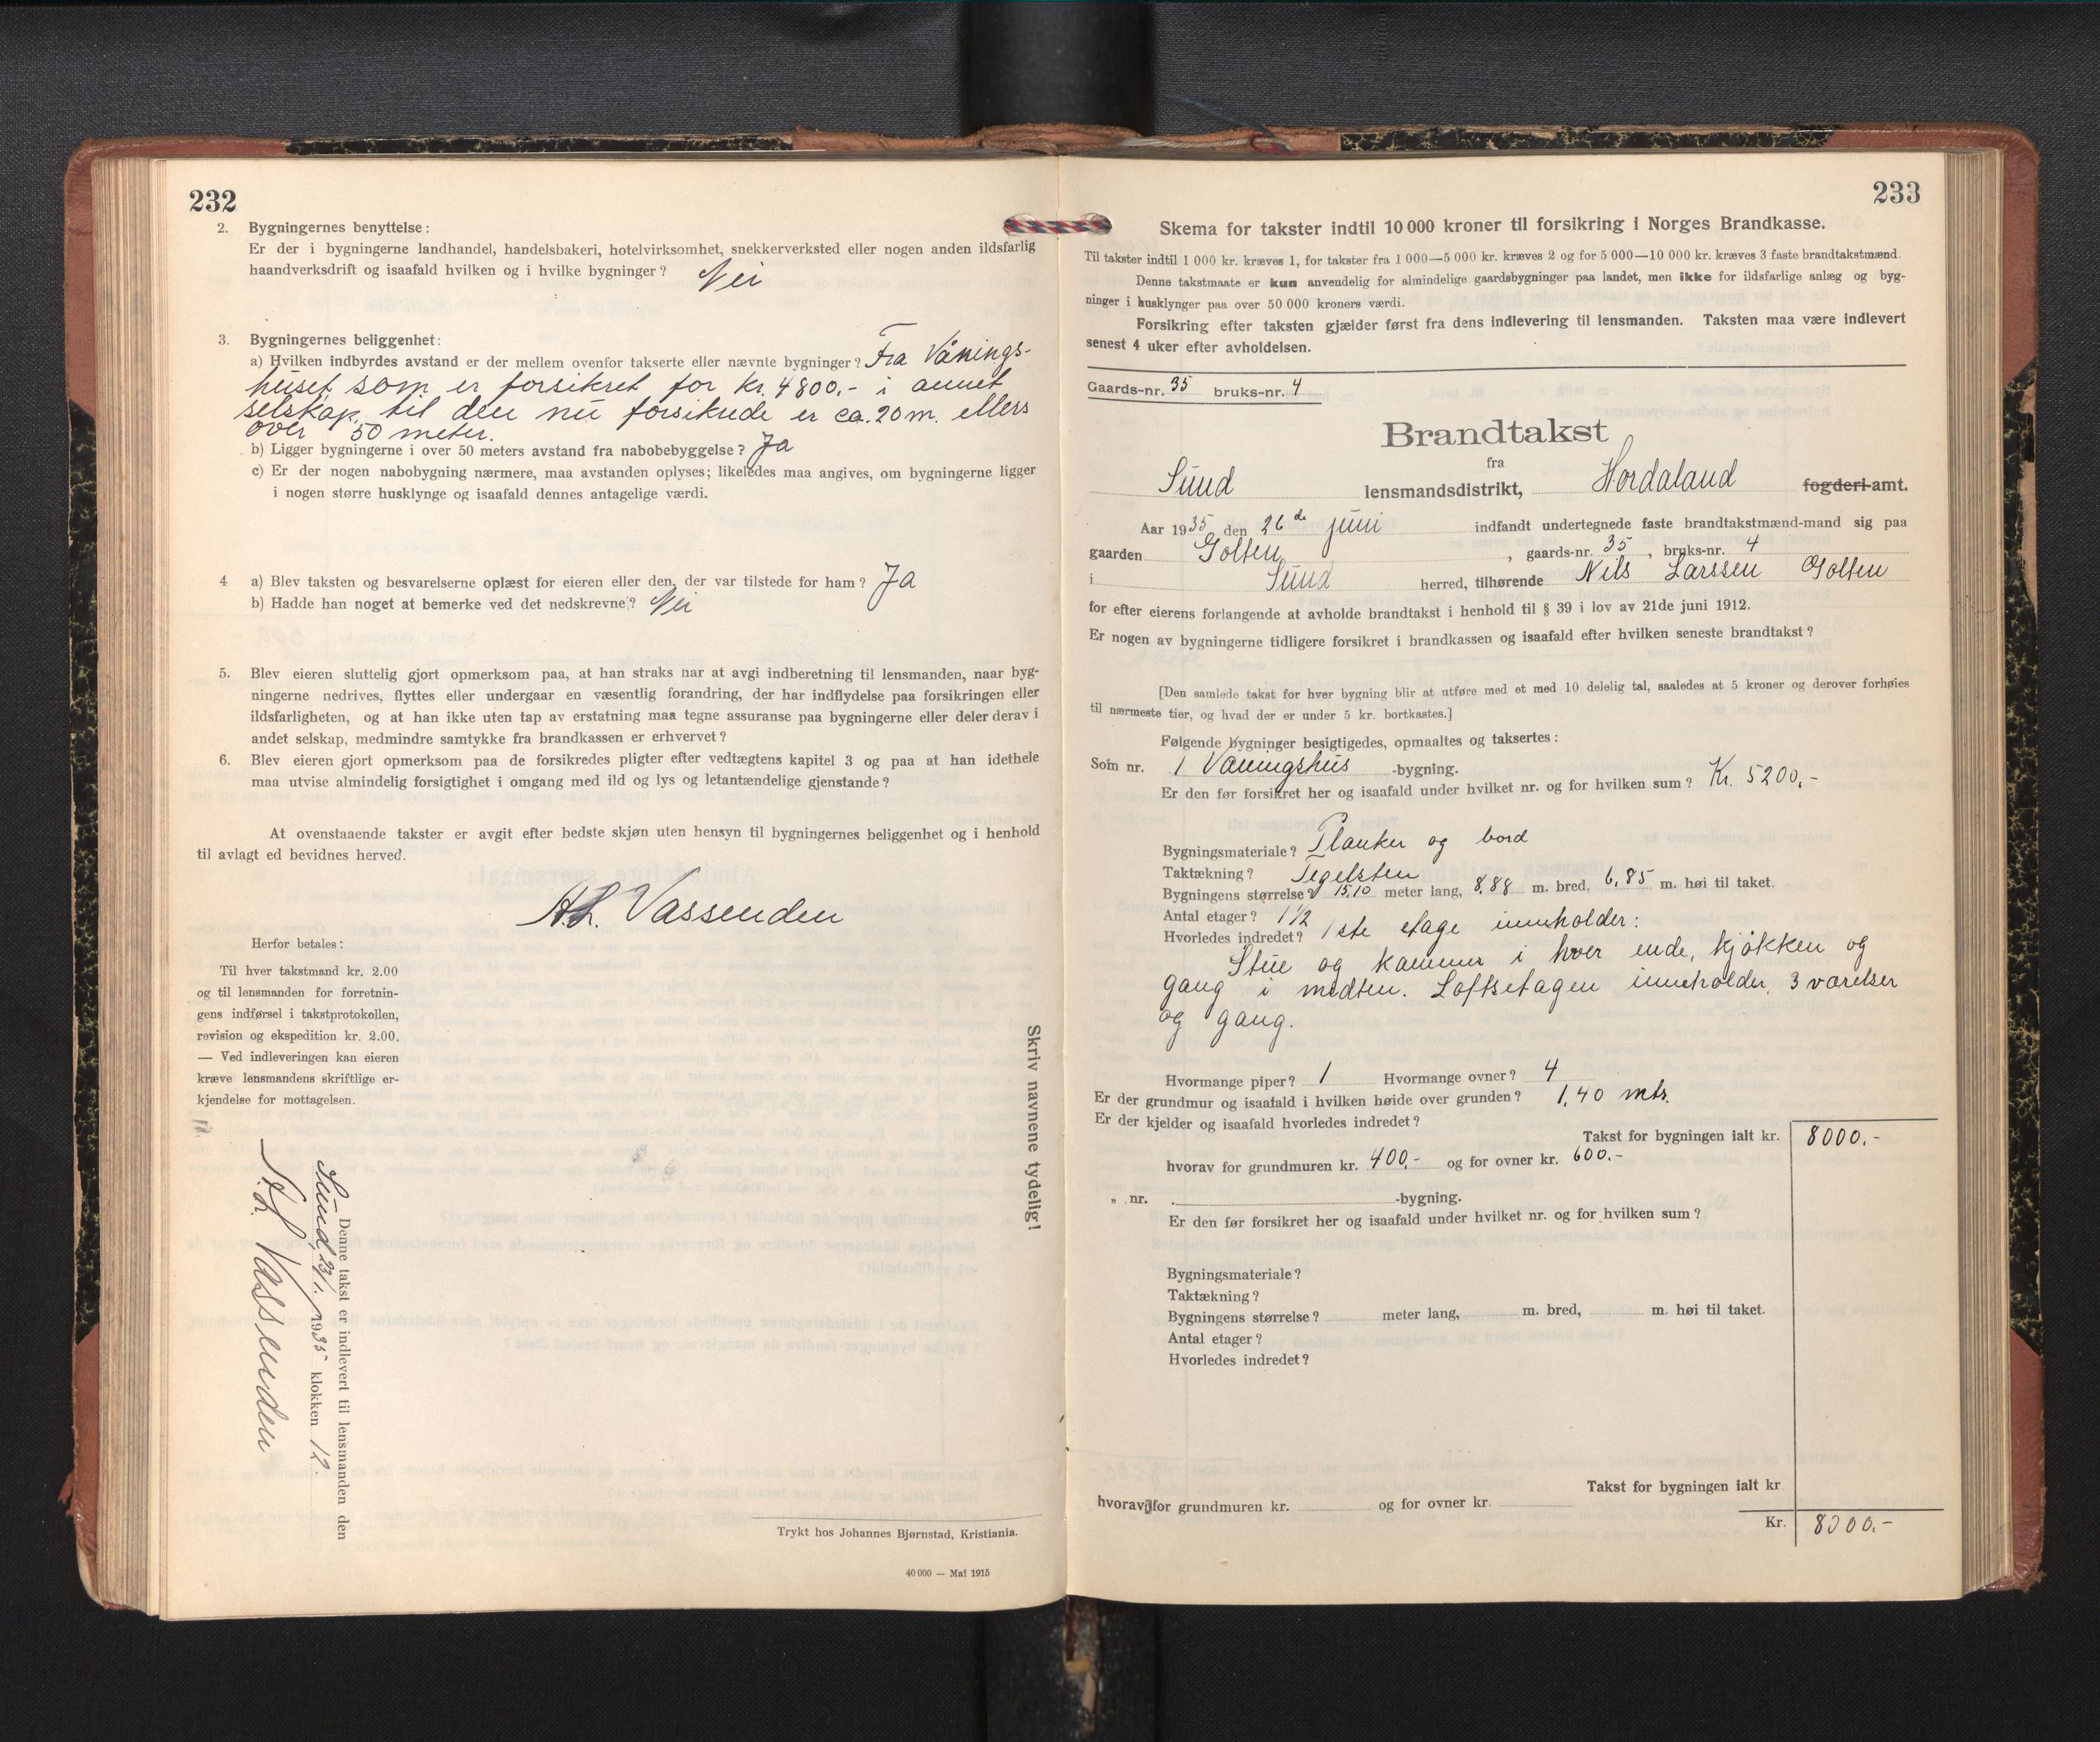 232
2. Bygningernes benyttelse:
Er der i bygningerne landhandel, handelsbakeri, hotelvirksomhet, snekkerverksted eller nogen anden ildsfarlig
haandverksdrift og isaafald hvilken og i hvilke bygninger? Nei
3. Bygningernes beliggenhet:
a) Hvilken indbyrdes avstand er der mellem ovenfor takserte eller nævnte bygninger? Fra Vånings-
huset som er forsikret for kr. 4800,- i annet
selskap til den nu forsikrede er ca. 20 m. ellers
over 50 meter.
b) Ligger bygningerne i over 50 meters avstand fra nabobebyggelse? Ja
c) Er der nogen nabobygning nærmere, maa avstanden oplyses; likeledes maa angives, om bygningerne ligger
i nogen større husklynge og isaafald dennes antagelige værdi.
4 a) Blev taksten og besvarelserne oplæst for eieren eller den, der var tilstede for ham? Ja
b) Hadde han noget at bemerke ved det nedskrevne? Nei
5. Blev eieren sluttelig gjort opmerksom paa, at han straks har at avgi indberetning til lensmanden, naar byg-
ningerne nedrives, flyttes eller undergaar en væsentlig forandring, der har indflydelse paa forsikringen eller
ildsfarligheten, og at han ikke uten tap av erstatning maa tegne assuranse paa bygningerne eller deler derav i
andet selskap, medmindre samtykke fra brandkassen er erhvervet?
6. Blev eieren gjort opmerksom paa de forsikredes pligter efter vedtægtens kapitel 3 og paa at han idethele
maa utvise almindelig forsigtighet i omgang med ild og lys og letantændelige gjenstande?
At ovenstaaende takster er avgit efter bedste skjøn uten hensyn til bygningernes beliggenhet og i henhold
til avlagt ed bevidnes herved.
A.L. Vassenden
Herfor betales:
Til hver takstmand kr. 2.00
og til lensmanden for forretnin-
gens indførsel i takstprotokollen,
revision og ekspedition kr. 2.00.
— Ved indleveringen kan eieren
kræve lensmandens skriftlige er-
kjendelse for mottagelsen.
Skriv navnene tydelig!
Denne takst er indlevert til lensmanden den
Sund, 1935 klokken 12.
A.L. Vassenden
Trykt hos Johannes Bjørnstad, Kristiania.
40 000 — Mai 1915
233
Skema for takster indtil 10 000 kroner til forsikring i Norges Brandkasse.
Til takster indtil 1 000 kr. kræves 1, for takster fra 1 000—5 000 kr. kræves 2 og for 5 000—10 000 kr. kræves 3 faste brandtakstmænd.
Denne takstmaate er kun anvendelig for almindelige gaardsbygninger paa landet, men ikke for ildsfarlige anlæg og byg-
ninger i husklynger paa over 50 000 kroners værdi.
Forsikring efter taksten gjælder først fra dens indlevering til lensmanden. Taksten maa være indlevert
senest 4 uker efter avholdelsen.
Gaards-nr. 35 bruks-nr. 4
Brandtakst
fra
Sund lensmandsdistrikt, Hordaland fogderi-amt.
Aar 1935 den 26de juni indfandt undertegnede faste brandtakstmænd-mand sig paa
gaarden Golten, gaards-nr. 35, bruks-nr. 4
i Sund herred, tilhørende Nils Larssen Golten
for efter eierens forlangende at avholde brandtakst i henhold til § 39 i lov av 21de juni 1912.
Er nogen av bygningerne tidligere forsikret i brandkassen og isaafald efter hvilken seneste brandtakst?
[Den samlede takst for hver bygning blir at utføre med et med 10 delelig tal, saaledes at 5 kroner og derover forhøies
til nærmeste tier, og hvad der er under 5 kr. bortkastes.]
Følgende bygninger besigtigedes, opmaaltes og taksertes:
Som nr. 1 Vaningshus -bygning.
Er den før forsikret her og isaafald under hvilket nr. og for hvilken sum? Kr. 5200,-
Bygningsmateriale? Planker og bord
Taktækning? Tegelsten
Bygningens størrelse? 15,10 meter lang, 8,88 m. bred, 6,85 m. høi til taket.
Antal etager? 1 1/2
Hvorledes indredet? 1ste etage inneholder:
Stue og kammer i hver ende, kjøkken og
gang i midten. Loftsetagen inneholder, 3 værelser
og gang.
Hvormange piper? 1 Hvormange ovner? 4
Er der grundmur og isaafald i hvilken høide over grunden? 1,40 mtr.
Er der kjelder og isaafald hvorledes indredet?
Takst for bygningen ialt kr. 8000,-
hvorav for grundmuren kr. 400,- og for ovner kr. 600.-
„ nr. -bygning.
Er den før forsikret her og isaafald under hvilket nr. og for hvilken sum?
Bygningsmateriale?
Taktækning?
Bygningens størrelse? meter lang, m. bred, m. høi til taket.
Antal etager?
Hvorledes indredet?
Takst for bygningen ialt kr
hvorav for grundmuren kr. og for ovner kr.
Kr. 8000.-